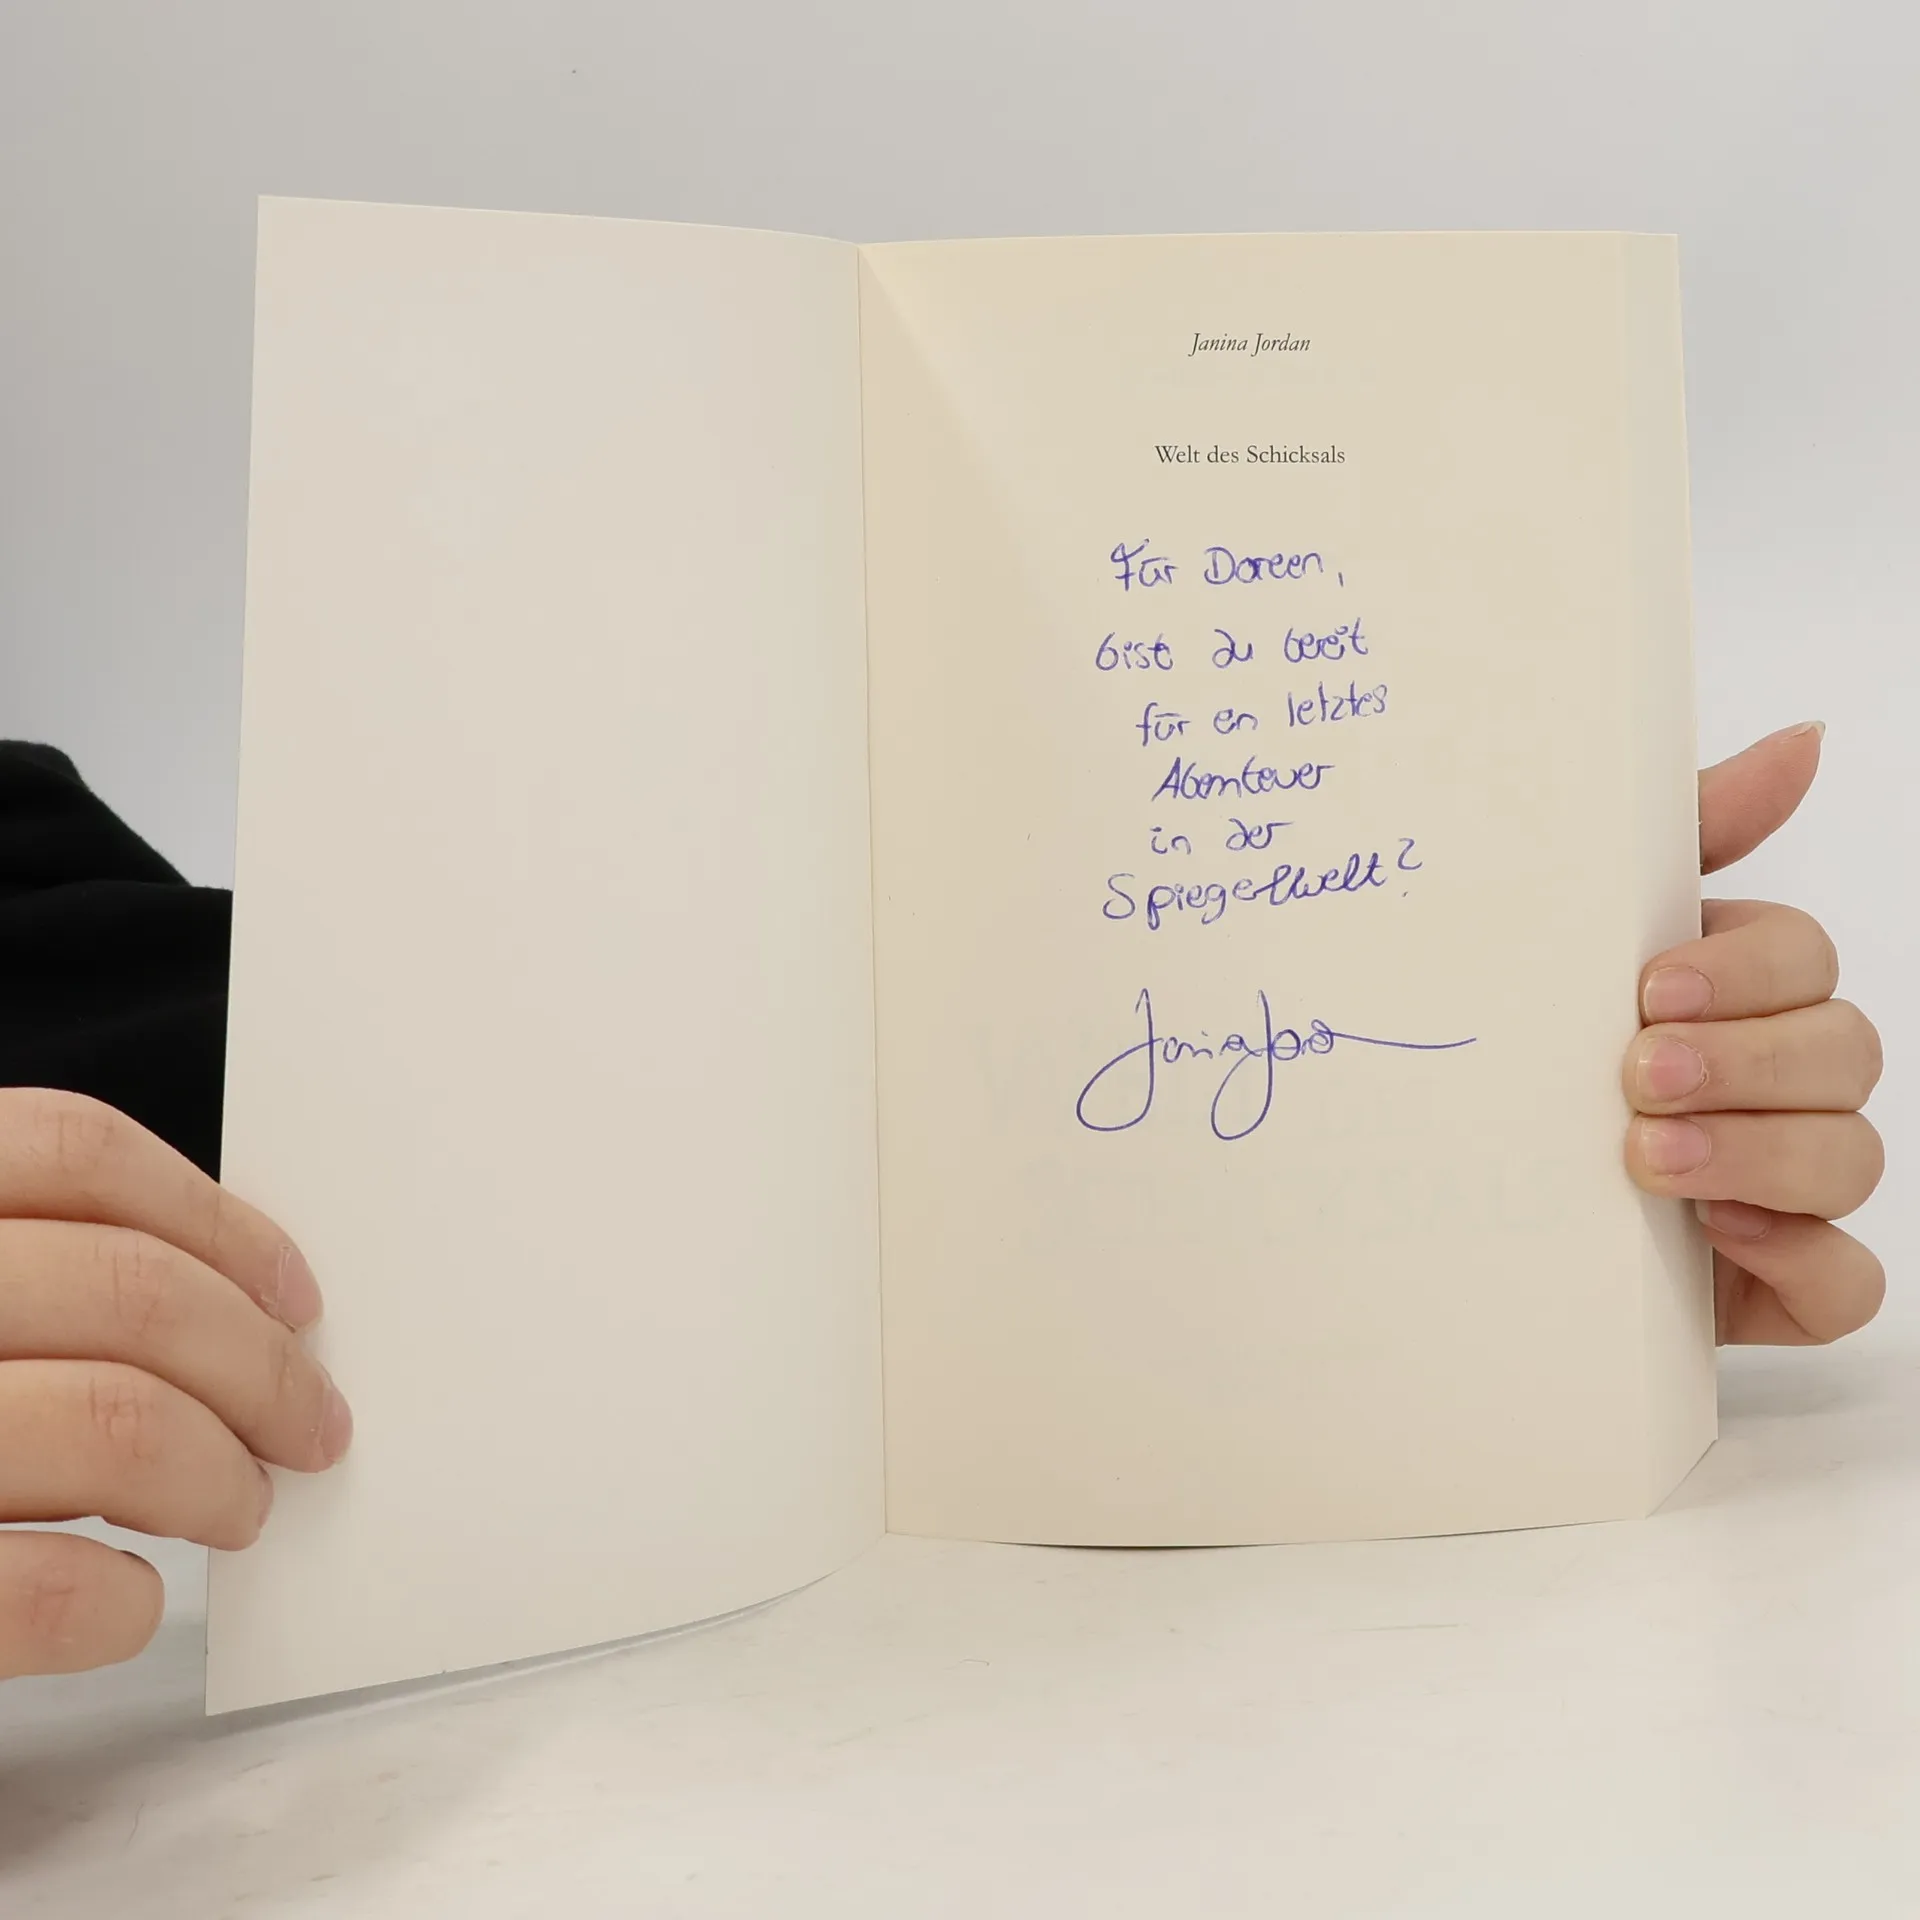 Janina Jordan
Welt des Schicksals
Für Doreen,
bist du bereit
für ein letztes
Abenteuer
in der
Spiegelwelt?